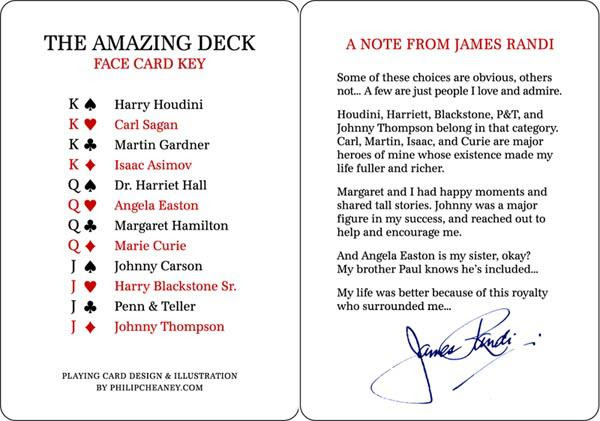 THE AMAZING DECK
FACE CARD KEY
K ♠ Harry Houdini
K ♥ Carl Sagan
K ♣ Martin Gardner
K ♦ Isaac Asimov
Q ♠ Dr. Harriet Hall
Q ♥ Angela Easton
Q ♣ Margaret Hamilton
Q ♦ Marie Curie
J ♠ Johnny Carson
J ♥ Harry Blackstone Sr.
J ♣ Penn & Teller
J ♦ Johnny Thompson
PLAYING CARD DESIGN & ILLUSTRATION
BY PHILIPCHEANEY.COM
A NOTE FROM JAMES RANDI
Some of these choices are obvious, others
not... A few are just people I love and admire.
Houdini, Harriett, Blackstone, P&T, and
Johnny Thompson belong in that category.
Carl, Martin, Isaac, and Curie are major
heroes of mine whose existence made my
life fuller and richer.
Margaret and I had happy moments and
shared tall stories. Johnny was a major
figure in my success, and reached out to
help and encourage me.
And Angela Easton is my sister, okay?
My brother Paul knows he's included...
My life was better because of this royalty
who surrounded me...
James Randi